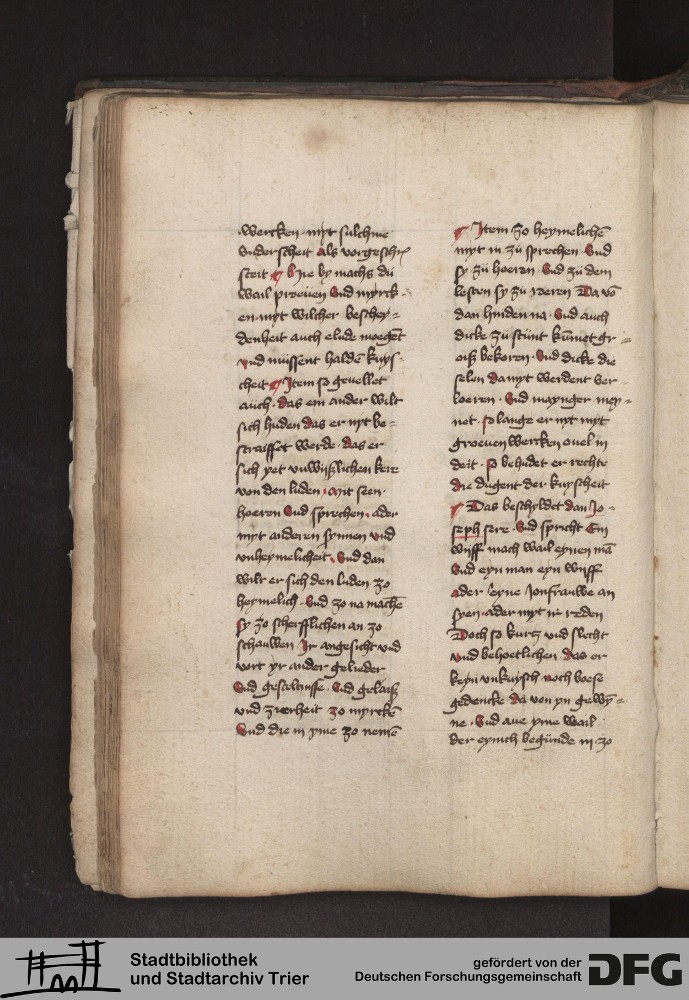 wercken myt sulchme
vnderscheit als vorgeschr
screit Hie by machs du
wail proeuen Vnd myrck-
en myt wilcher beschey-
denheit auch elude moegēt
vnd mussent haldē kuys
cheit Item so geuellet
auch das ein ander wilt
sich huden das er nyt be-
straffet werde das er
sich yet vnwyslichen kere
von den luden mit seen
hoeren Vnd sprechen ader
myt anderen synnen vnd
vnheymelicheit Vnd dan
wilt er sich den luden zo
heymelich Vnd zo na machē
sy zo scherfflichen an zo
schauwen Ir angesicht vnd
vort yr ander gelieder
Vnd gestaltnisse Vnd gelaiß
vnd zierheit zo myrckē
Vnd die in yme zo nemē
Item zo heymelichē
myt in zu sprechen Vnd
sy zu hoeren Vnd zu dem
lesten sy zu reren Da vō
dan hinden na Vnd auch
dicke zu stunt kūmet gr=
oiß bekoren Vnd dicke die
selen da myt werdent ver-
loeren Vnd maynger mey-
net so lange er nyt myt
groeuen wercken ouel in
deit so behudet er rechte
die dugent der kuyscheit
Das beschyldet dan Jo-
seph sere Vnd spricht Ein
wyff mach wail eynen mā
Vnd eyn man eyn wyff
ader eyne Jonfrauwe an
syen ader myt ir reden
Doch so kurtz vnd slecht
vnd behoetlichen das er
keyn vnkuysch noch boese
gedencke da von yn gewȳ=
ne Vnd aue yme wail
der eynich begunde in zo
Stadtbibliothek
und Stadtarchiv Trier
gefördert von der
Deutschen Forschungsgemeinschaft
DFG